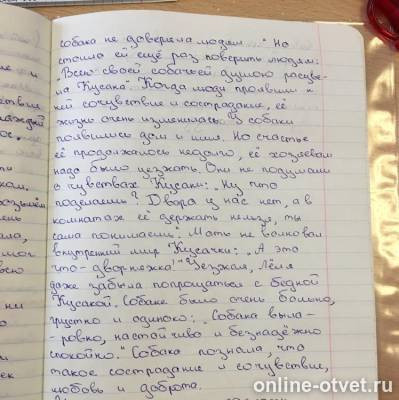 собака не доверяла людям..." Но
стоило ей ещё раз поверить людям:
"Всею своей собачьей душою расцве-
ла Кусака". Когда люди проявили к
ней сочувствие и сострадание, её
жизнь очень изменилась. У собаки
появились дом и имя. Но счастье
её продолжалось недолго, её хозяевам
надо было уезжать. Они не подумали
о чувствах Кусаки: "Ну что
поделаешь? Двора у нас нет, а в
комнатах её держать нельзя, ты
сама понимаешь". Мать не волновал
внутренний мир Кусачки: "А это
что-дворняжка!" Уезжая, Лёля
даже забыла попрощаться с бедной
Кусакой. Собаке было очень больно,
грустно и одиноко: "Собака выла-
-ровно, настойчиво и безнадёжно
спокойно." Собака познала, что
такое сострадание и сочувствие,
любовь и доброта.
online-otvet.ru